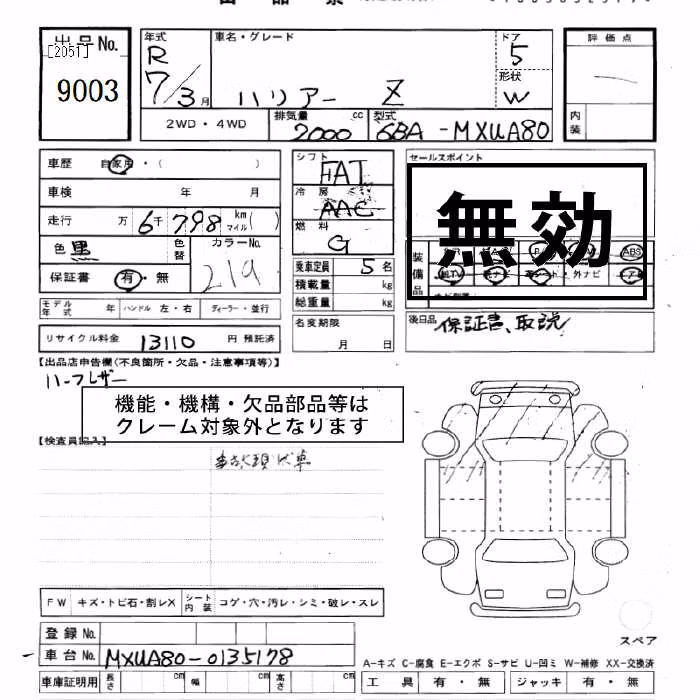 出品No.
[2051]
9003
年式
R
7/3月
車名・グレード
ハリアー Z
ドア
5
形状
W
評価点
内装
2WD・4WD
排気量 cc
2000
型式
6BA-MXUA80
車歴 自家用・( )
車検 年 月
走行 万 6千 798 km マイル ( )
色 黒
色替
カラーNo.
219
保証書 有・無
モデル年式 年 ハンドル 左・右 ディーラー・並行
リサイクル料金 13110 円 預託済
シフト
FAT
冷房
AAC
燃料
G
乗車定員 5 名
積載量 kg
総重量 kg
名変期限
月 日
セールスポイント
無効
装備品
ABS
外ナビ
後日品 保証書、取説
【出品店申告欄(不良箇所・欠品・注意事項等)】
ハーフレザー
機能・機構・欠品部品等は
クレーム対象外となります
【検査員記入】
事故現状車
FW キズ・トビ石・割レX シート内装 コゲ・穴・汚レ・シミ・破レ・スレ
スペア
登録No.
車台No. MXUA80-0135178
A-キズ C-腐食 E-エクボ S-サビ U-凹ミ W-補修 XX-交換済
車庫証明用 長さ cm 幅 cm 高さ cm
工具 有・無 ジャッキ 有・無